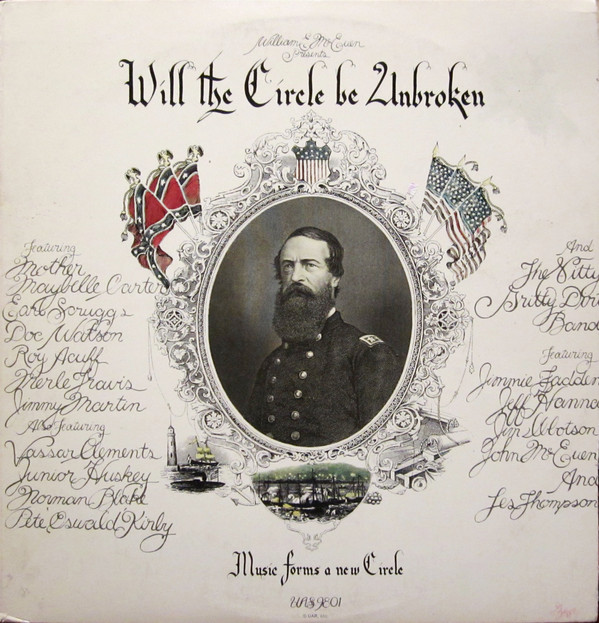 William E. McEuen
Presents
Will the Circle be Unbroken
Featuring
Mother
Maybelle Carter
Earl Scruggs
Doc Watson
Roy Acuff
Merle Travis
Jimmy Martin
Also Featuring
Vassar Clements
Junior Huskey
Norman Blake
Pete Oswald Kirby
And
The Nitty
Gritty Dirt
Band
Featuring
Jimmie Fadden
Jeff Hanna
Jim Ibbotson
John McEuen
And
Les Thompson
Music forms a new Circle
UAS 9801